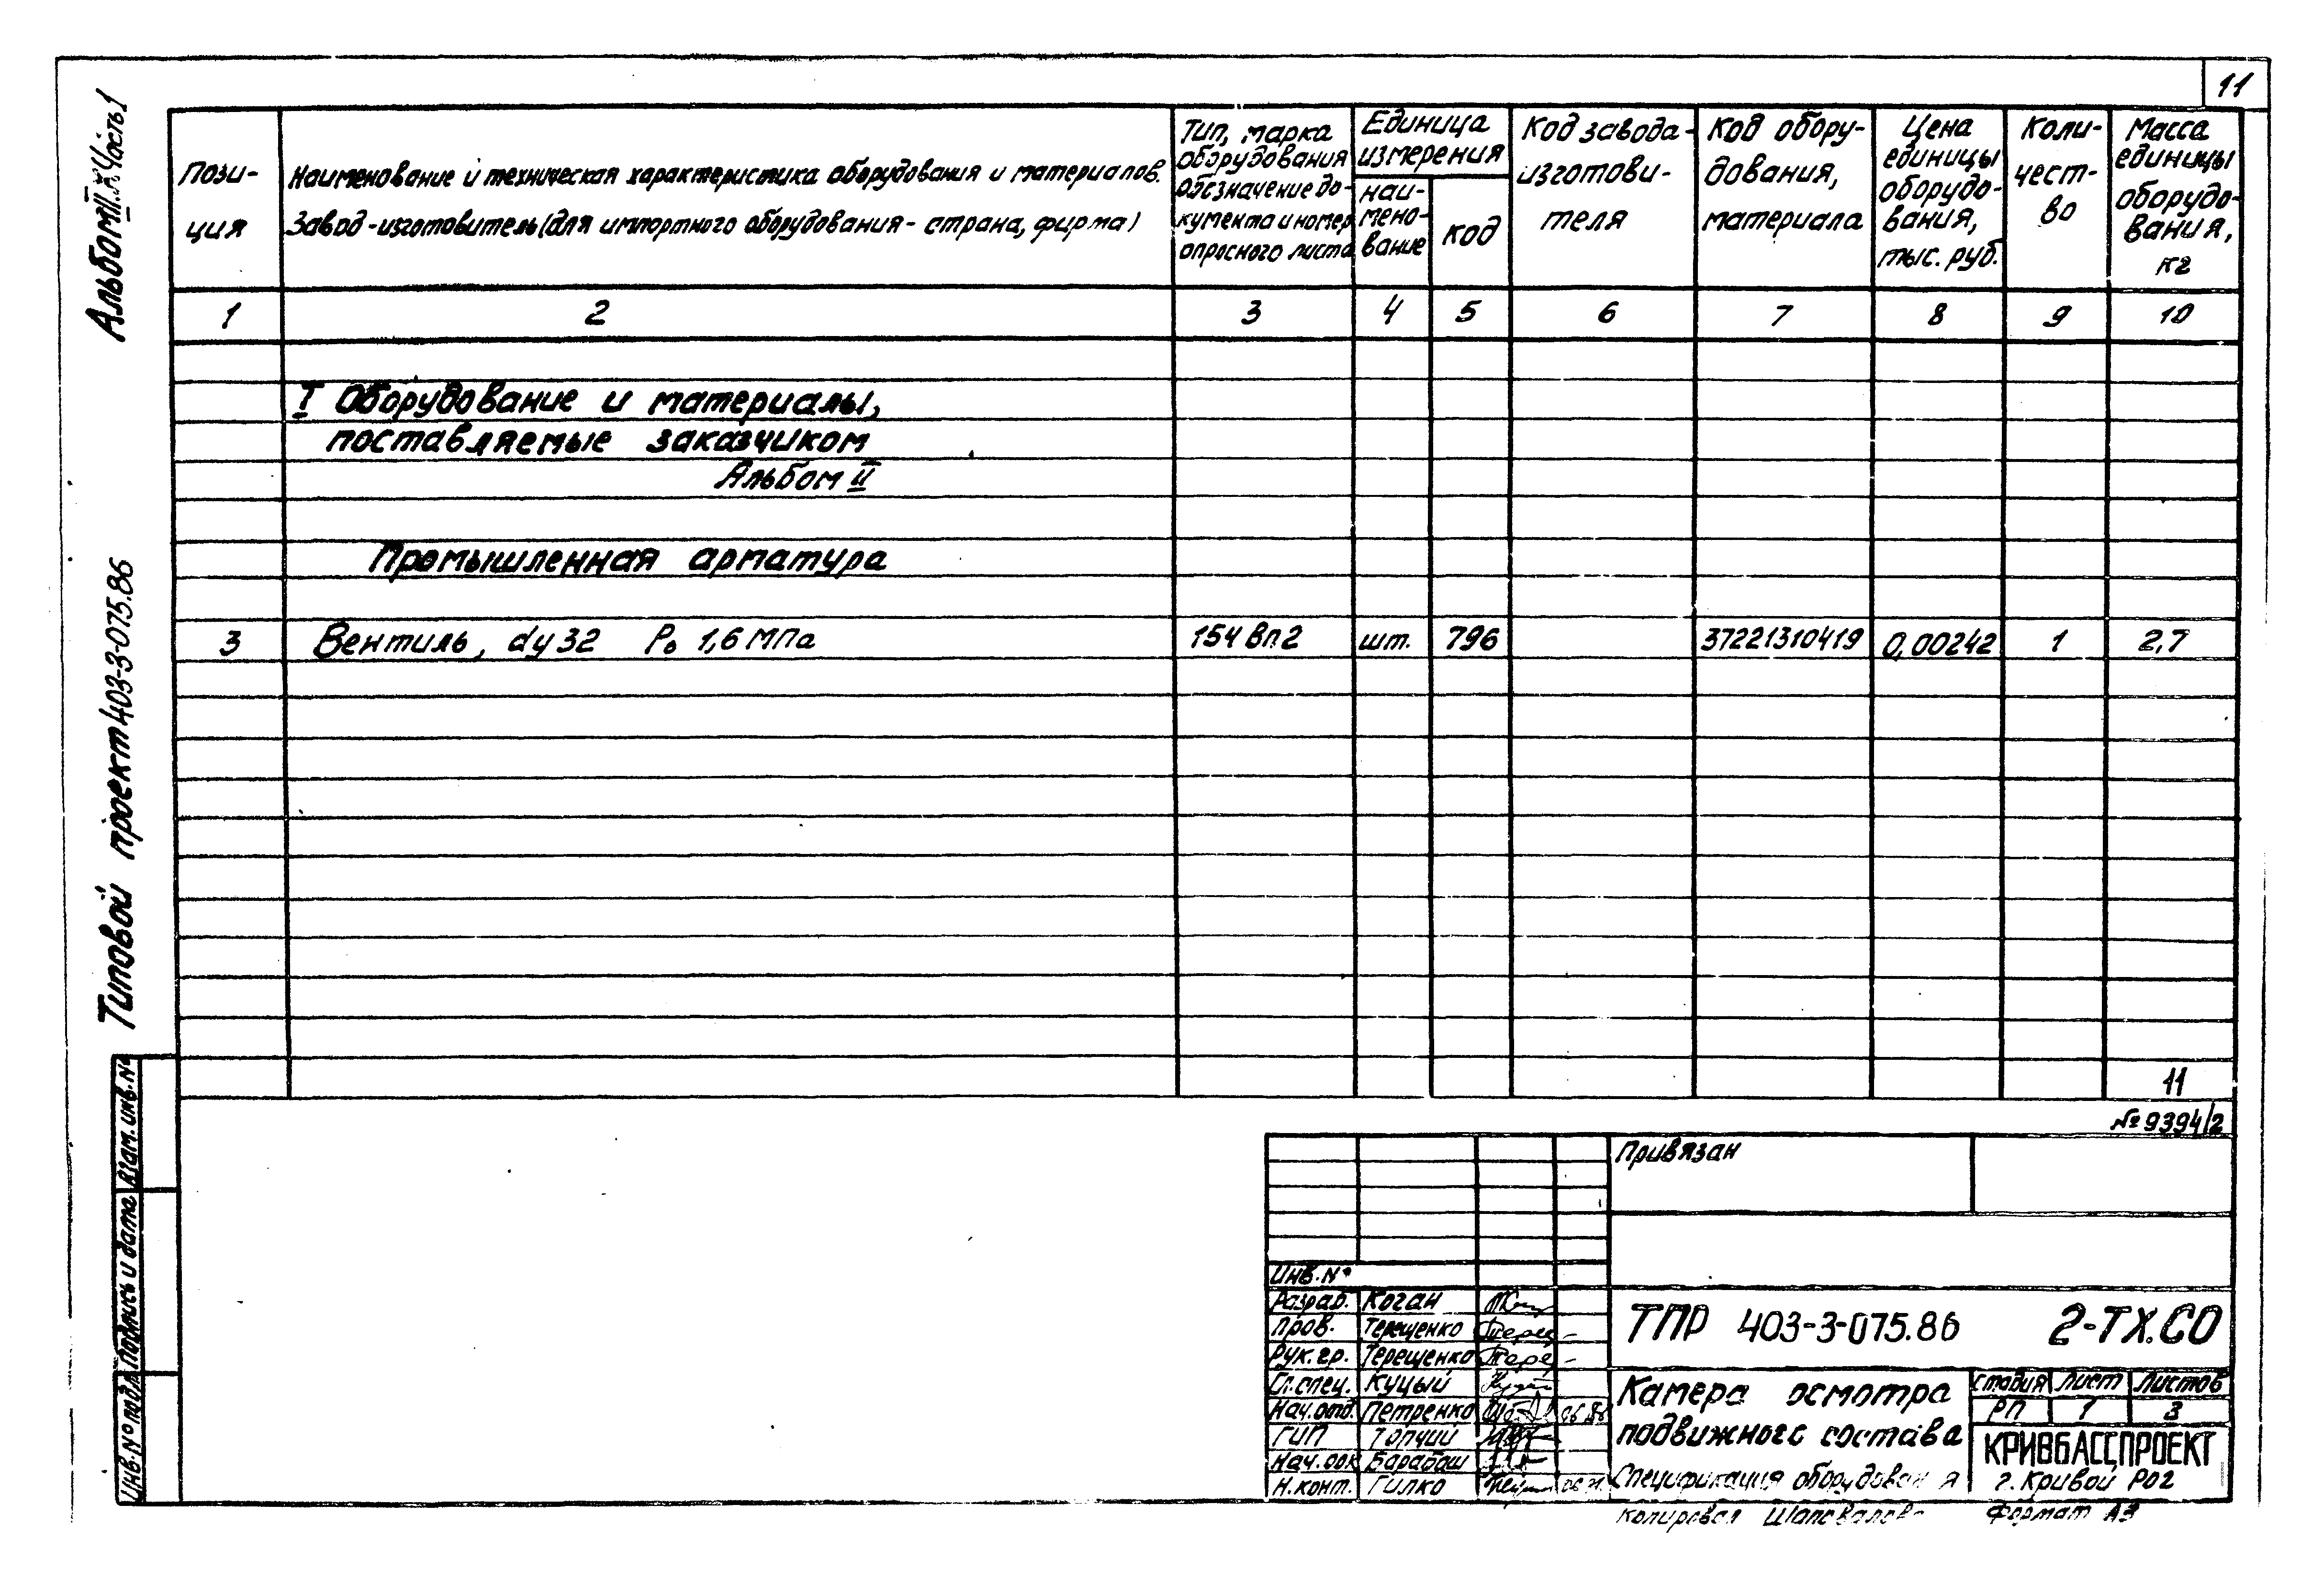 11
Альбом II. Часть 1
Типовой проект 403-3-075.86
Пози-
ция
Наименование и техническая характеристика оборудования и материалов.
Завод-изготовитель (для импортного оборудования - страна, фирма)
Тип, марка
оборудования
Обозначение до-
кумента и номер
опросного листа
Единица
измерения
наи-
мено-
вание
код
Код завода-
изготови-
теля
Код обору-
дования,
материала
Цена
единицы
оборудо-
вания,
тыс. руб.
Коли-
чест-
во
Масса
единицы
оборудо-
вания,
кг
1 2 3 4 5 6 7 8 9 10
I Оборудование и материалы,
поставляемые заказчиком
Альбом II
Промышленная арматура
3 Вентиль, dу 32 Р₀ 1,6 МПа 15ч 8п2 шт. 796 37221310419 0,00242 1 2,7
11
№ 9394/2
Привязан
Инв. №
Разраб. Коган
Пров. Терещенко
Рук. гр. Терещенко
Гл. спец. Куцый
Нач. отд. Петренко 06.86
ГИП Топчий
Нач. оок Барабаш
Н. конт. Гилко
ТПР 403-3-075.86 2-ТХ.СО
Камера осмотра
подвижного состава
Спецификация оборудования
Стадия Лист Листов
РП 1 3
КРИВБАССПРОЕКТ
г. Кривой Рог
Копировал Шаповалов
Формат А3
Взам. инв. №
Подпись и дата
Инв. № подл.